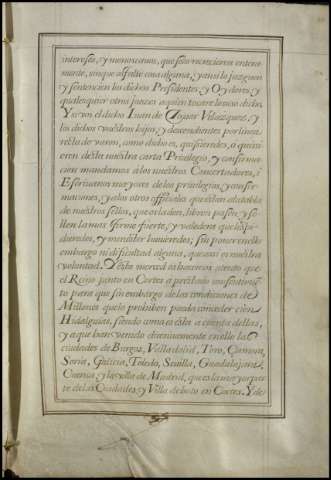 intereses, y menoscauos, que sobre ello recrecieren entera
mente, sin que os falte cosa alguna, y ansi lo juzguen
y sentencien los dichos Presidentes, y Oydores, y
qualesquier otros jueces a quien tocare lo suso dicho.
Y si vos el dicho Iuan de Velazquez, y
los dichos vuestros hijos, y descendientes por linea
recta de varon, como dicho es, quisieredes, o quisi
eren desta nuestra carta Priuilegio, y confirma
cion mandamos a los nuestros Concertadores, i
Escriuanos mayores de los priuilegios, y confir
maciones, y a los otros officiales que estan a la tabla
de nuestros sellos, que os la den, libren, pasen, y se
llen la mas firme fuerte, y valedera que les pi
dieredes, y menester huuieredes; sin poner en ello
embargo ni dificultad alguna, que assi es nuestra
voluntad. Y esta merced os hacemos atento que
el Reino junto en Cortes a prestado consentimien
to para que sin embargo de las condiciones de
Millones que lo prohiben pueda conceder cien
Hidalguias, siendo como es esta a cuenta dellas,
y a que han venido difinitiuamente en ello las
ciudades de Burgos, Valladolid, Toro, Çamora,
Soria, Galicia, Toledo, Seuilla, Guadalajara,
Cuenca y la villa de Madrid, que es la mayor par
te de las Ciudades, y Villa de boto en Cortes. Y de